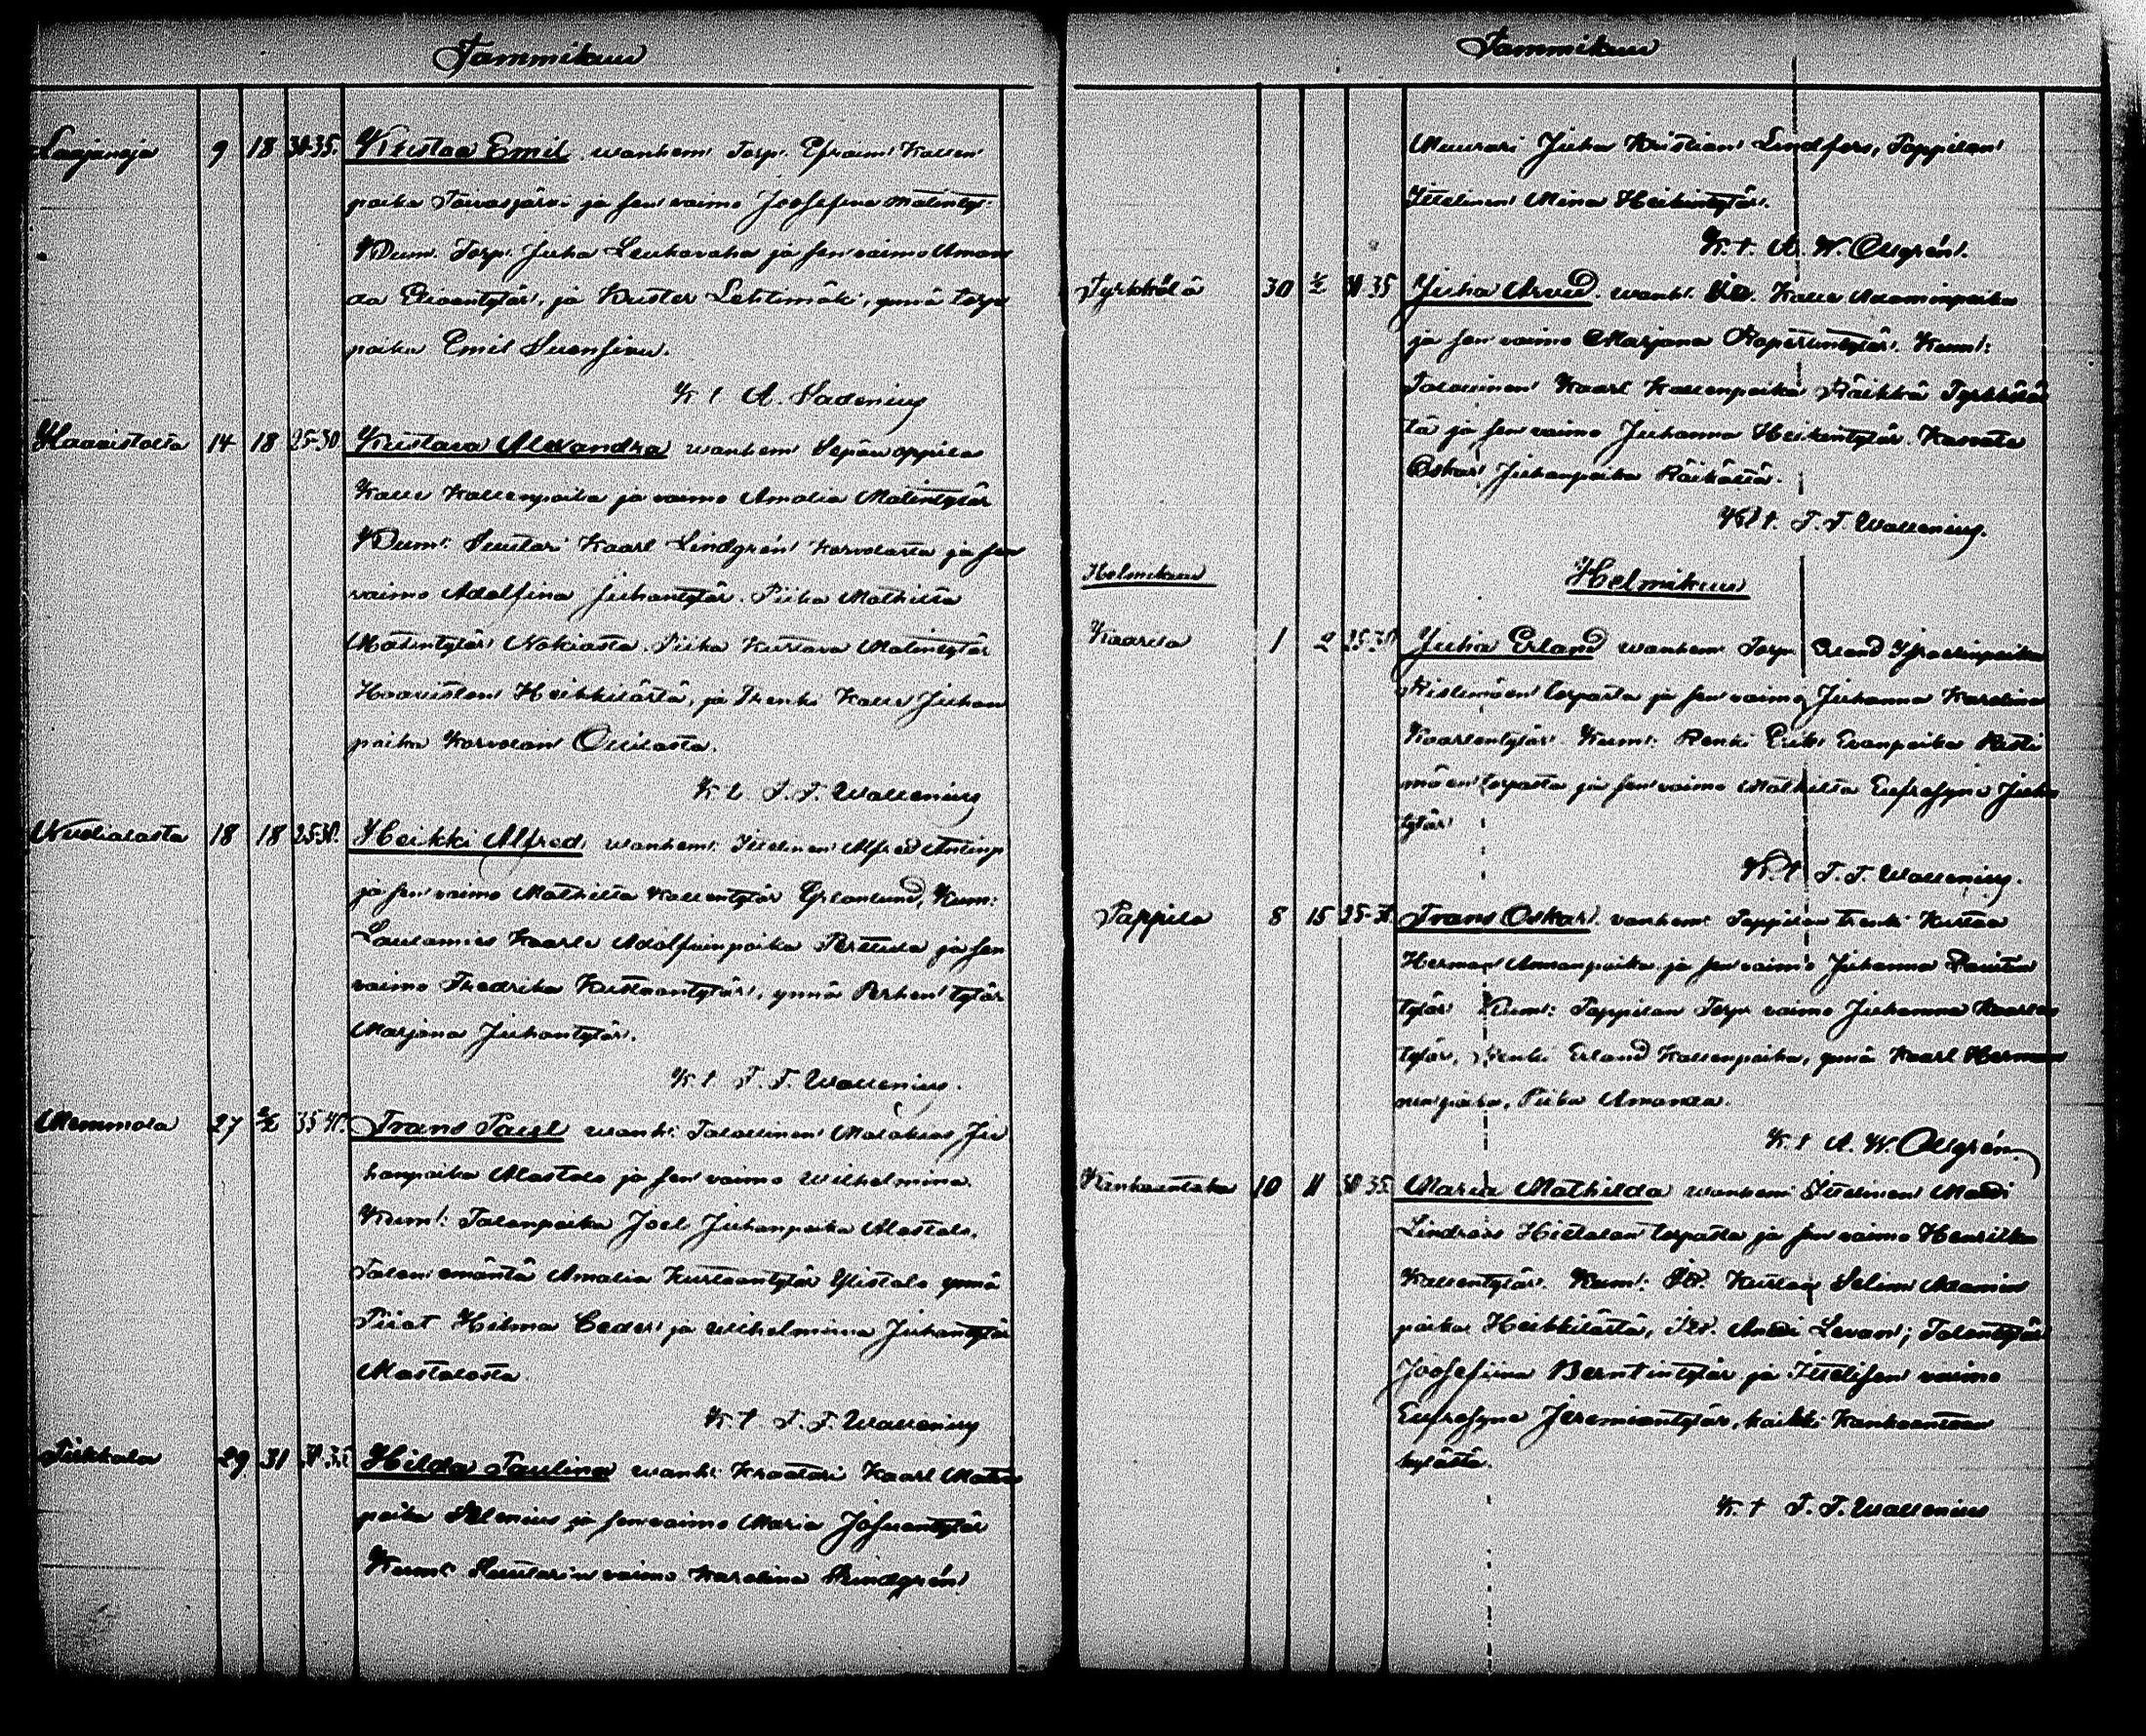 Tammikuu
Laajanoja 9 18 30-35. Kustaa Emil wanhem: Torp. Efraim Kallen
poika Taivasjärvi ja sen vaimo Josefina Matintyt.
Kum. Torp. Juha Leukavaha ja sen vaimo Aman
da Eliaantytär, ja Kuster Lehtimäki, ynnä torp
poika Emil Svensson.
K t A.
Haavistolta 14 18 25-30 Kustava Alexandra wanhem: Sepän oppilas
Kalle Kallenpoika ja vaimo Amalia Matintytär
Kum: Suutari Kaarl Lindgrén Korvolasta ja sen
vaimo Adolfina Juhantytär. Piika Mathilda
Matintytär Nokiasta. Piika Kustava Matintytär
Haaviston Heikkilästä, ja Trenki Kalle Juhan
poika Korvolan Ollilasta.
K t T. T. Wallenius
Nuhialasta 18 18 25-30. Heikki Alfred wanhem: Itellinen Alfred Antinp
ja sen vaimo Mathilda Kallentytär Grönlund, Kum:
Lautamies Kaarle Adolfinpoika Perttula ja sen
vaimo Fredrika Kustaantytär, ynnä Perhen tytär
Marjana Juhantytär.
K t T. T. Wallenius.
Memmola 27 2/2 35-40. Frans Paul wanh: Talollinen Malakias Ju
hanpoika Alastalo ja sen vaimo Wilhelmina.
Kum: Talonpoika Joel Juhanpoika Alastalo.
Talon emäntä Amalia Kustaantytär Ylistalo ynnä
Piiat Hilma Ceder ja Wilhelmina Juhantytär
Alastalosta
K. t T. T. Wallenius
Pirkkala 29 31 30-35 Hilda Paulina wanh: Kraatari Kaarl Matin
poika Salenius ja sen vaimo Maria Josuantytär
Kum: Suutarin vaimo Karolina Lindgrén
Tammikuu
Muurari Juha Kristian Lindfors, Pappilan
Itellinen Mina Heikintytär.
K. t. A. W. Ollgrén.
Tyrkkölä 30 2/2 30-35 Juha Arvid. wanh. Kalle Adaminpoika
ja sen vaimo Marjana Kapertuntytär. Kum:
Talollinen Kaarl Kallenpoika Räikkä Tyrkkölä
tä ja sen vaimo Juhanna Heikintytär. Kasvate
Oskar Juhanpoika Räikältä.
K t. T. T. Wallenius.
Helmikuu Helmikuu
Kaarila 1 2 25-30 Juha Erland wanhem: Torp. Erland Israelinpoika
Ristimäen torpasta ja sen vaimo Juhanna Karolina
Kaarlentytär. Kum: Renki Erik Evanpoika Risti
mäen torpasta ja sen vaimo Mathilda Eufrosyna Juha
tytär
K. t T. T. Wallenius.
Pappila 8 15 25-30 Frans Oskar. vanhem: Pappilan trenki Kustaa
Herman Annanpoika ja sen vaimo Juhanna Taavitin
tytär Kum: Pappilan Torp. vaimo Juhanna Kaarlen
tytär, Renki Erland Kallenpoika, ynnä Kaarl Herman
ninpoika, Piika Amanda.
K. t A. W. Ollgrén.
Kankaantaka 10 11 30-35 Maria Mathilda wanhem: Itellinen Matti
Lindroos Hietalan torpasta ja sen vaimo Henrika
Kallentytär. Kum: Kustaa Selim Adamin
poika Heikkilästä, Antti Levan; Talontytär
Joosefiina Berntintytär ja Itellisen vaimo
Eufrosyna Jeremiantytär, kaikki Kankaantaan
kylästä.
K. t T. T. Wallenius